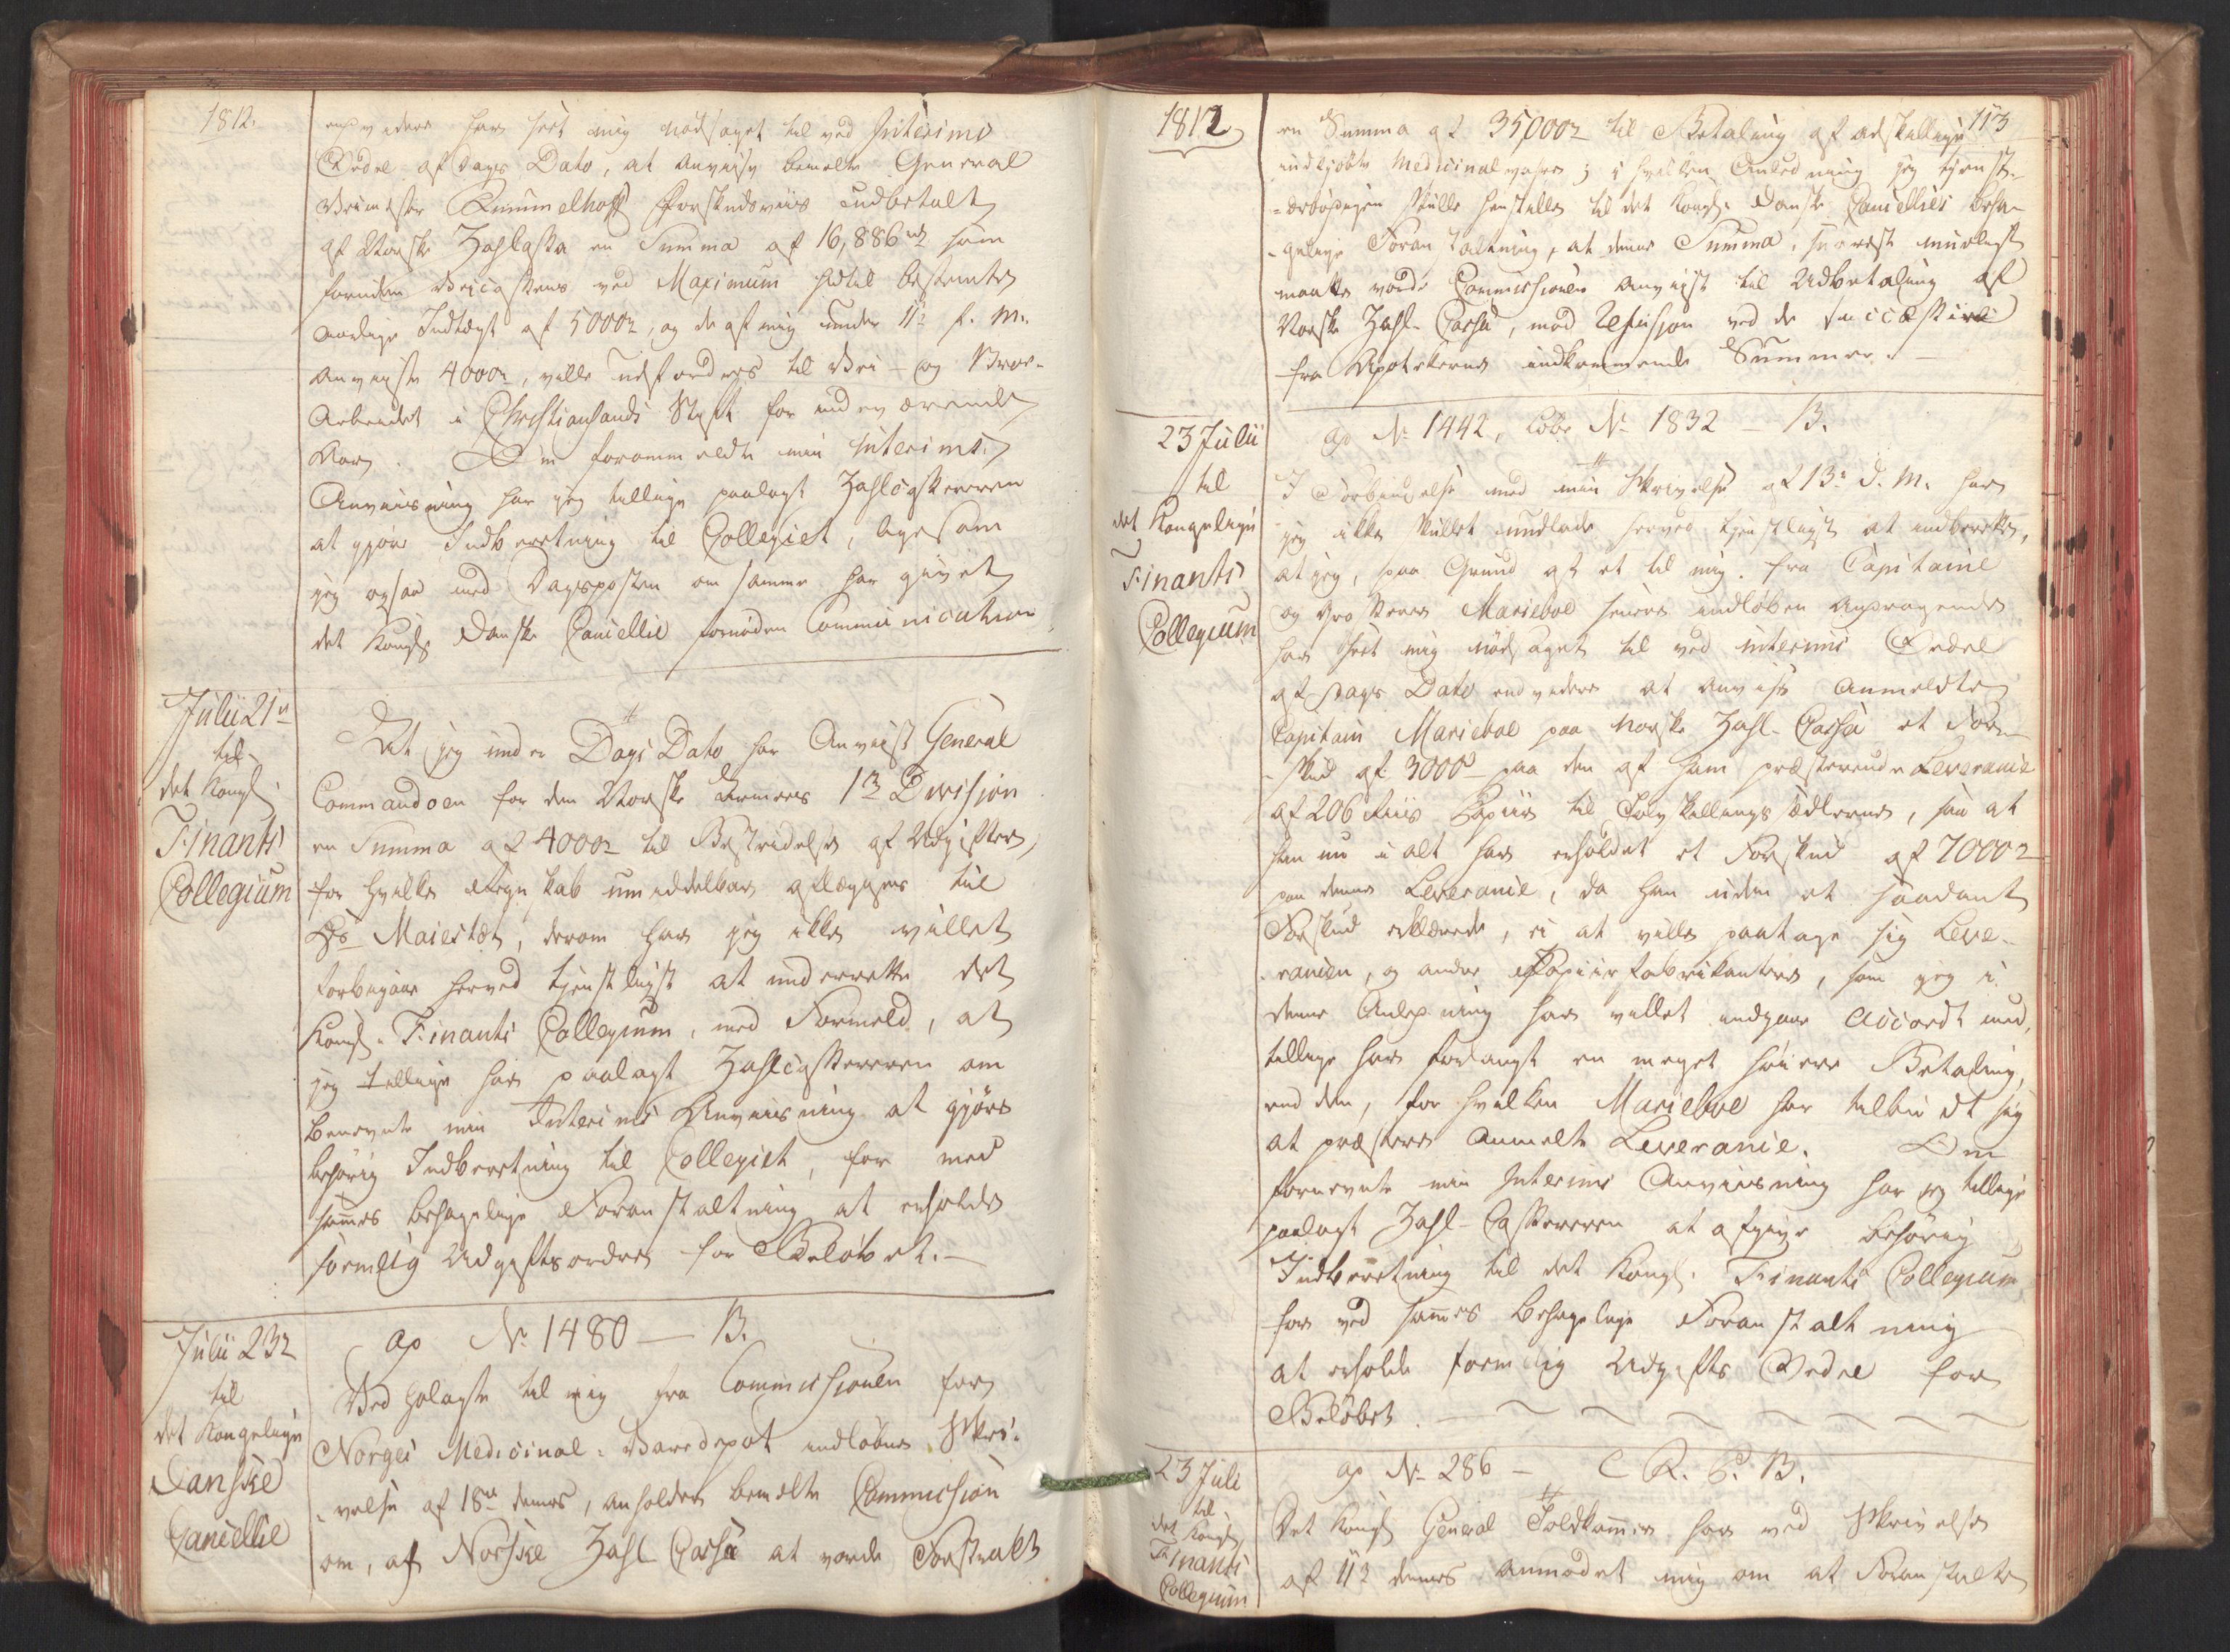 1812.
endvidere har seet mig nødsaget til ved Interims
Ordre af Dags Dato, at anviise bemelte General
Veimester Rummelhoff Forskudsviis udbetalt
af Norske Zahlcassa en Summa af 16,886 rd som
foruden Veicassens ved Maximum hidtil bestemte
aarlige Indtægt af 5000 rd, og de af mig under 11te f. M.
anviiste 4000 rd, ville udfordres til Vei- og Broe-
Arbeidet i Christiansands Stift for indeværende
Aar. Om foranmeldte min Interims
Anviisning har jeg tillige paalagt Zahlcassereren
at gjøre Indberetning til Collegiet, ligesom
jeg ogsaa med Dagsposten om samme har givet
det Kongl. Danske Cancellie fornøden Communication.
Julii 21de
til
det Kongl.
Finants
Collegium
At jeg under Dags Dato har Anviist General
Commandoen for den Norske Armees 1ste Division
en Summa af 4000 rd til Bestridelse af Udgifter,
for hvilke Regnskab umiddelbar aflægges til
Hs Maiestæt, derom har jeg ikke villet
forbigaae herved tjenstligst at underrette det
Kongl. Finants Collegium, med Formeld, at
jeg tillige har paalagt Zahlcassereren om
benevnte min Interims Anviisning at gjøre
behørig Indberetning til Collegiet, for med
sammes behagelige Foranstaltning at erholde
formelig Udgiftsordre for Beløbet.
Julii 23de
til
det Kongelige
Danske
Cancellie
ap No 1480 — B.
Ved Hølagte til mig fra Commissionen for
Norges Medicinal-Varedepot indløbne Skri-
velse af 18de dennes, anholder bemelte Commission
om, af Norske Zahl Cassa at vorde Forstrakt
1812
113
en Summa af 35,000 rd til Betaling af adskillige
indkjøbte Medicinalvahre; i hvilken Anledning jeg tjenst-
ærbødigen skulle henstille til det Kongl. Danske Cancellies beha-
gelige Foranstaltning, at denne Summa, snarest mueligst
maatte vorde Commissionen anviist til Udbetaling af
Norske Zahl-Cassa, mod Refusion ved de successive
fra Apothekerne indkommende Summer.
23 Julii
til
det Kongelige
Finants
Collegium
ap No 1442, Cobr No 1832 — B.
I Forbindelse med min Skrivelse af 13de d. M. har
jeg ikke skullet undlade herved tjenstligst at indberette,
at jeg, paa Grund af et til mig fra Capitaine
og Marieboe senere indløben Andragende
har seet mig nødsaget til ved interims Ordre
af Dags Dato endvidere at anvise anmeldte
Capitain Marieboe paa Norske Zahl-Cassa et For-
skud af 3000 rd paa den af ham præsterende Leverance
af 206 Riis Papiir til Tolvskillings Sedlerne, saa at
han nu i alt har erholdet et Forskud af 7000 rd
paa denne Leverance, da han uden et saadant
Forskud erklærede, ei at ville paatage sig Leve-
rancen, og andre Papiirfabrikanter, som jeg i
denne Anledning har villet indgaae Accordt med,
tillige har forlangt en meget høiere Betaling,
end den, for hvilken Marieboe har tilbudt sig
at præstere anmelte Leverance. Om
fornevnte min Interims Anviisning har jeg tillige
paalagt Zahl-Cassereren at afgive behørig
Indberetning til det Kongl. Finants Collegium
for ved sammes behagelige Foranstaltning
at erholde formelig Udgifts Ordre for
Beløbet.
23 Juli
til
det Kongl
Finants
Collegium
ap No 286 — C R. C. B.
Det Kongl General Toldkammer har ved Skrivelse
af 11te dennes anmodet mig om at Foranstalte